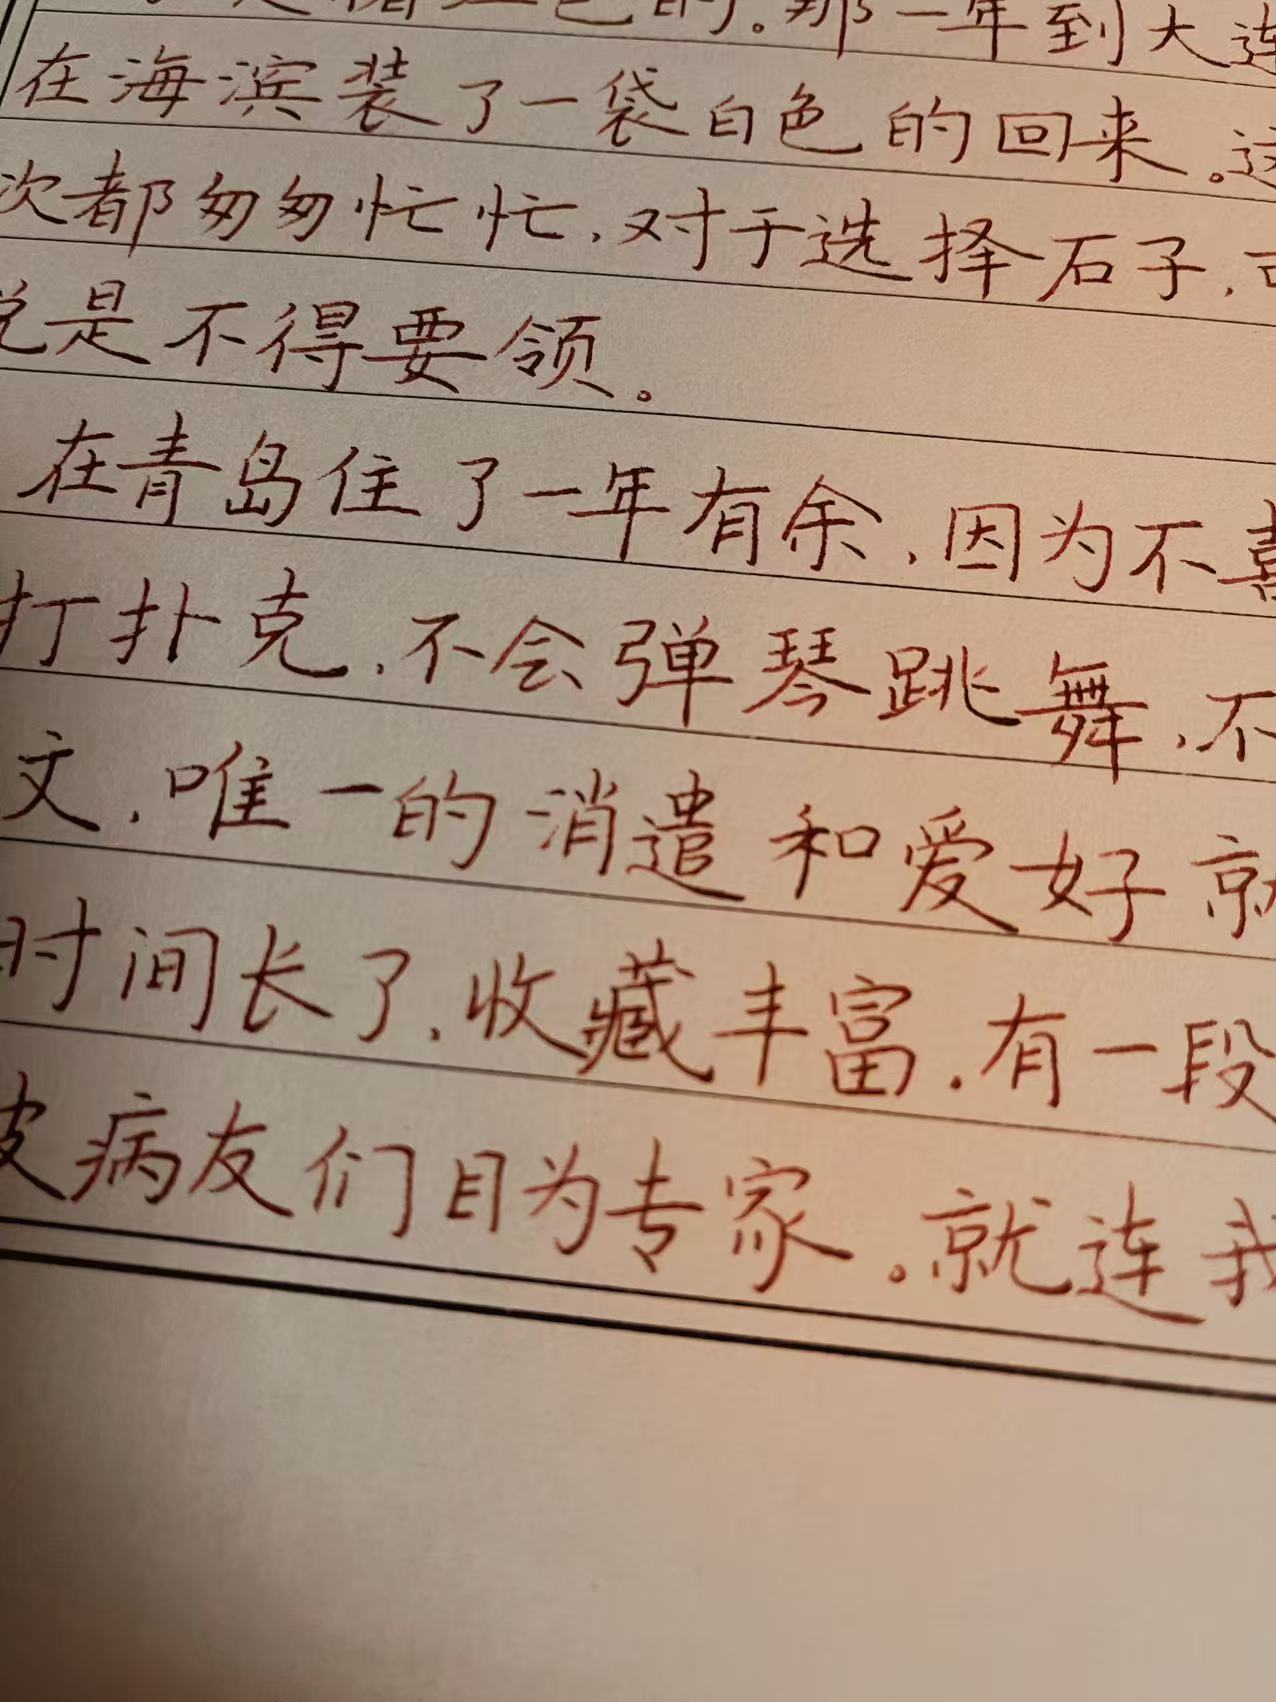 色的。那一年到大连
在海滨装了一袋白色的回来。这
次都匆匆忙忙,对于选择石子,可
说是不得要领。
在青岛住了一年有余,因为不喜
打扑克,不会弹琴跳舞,不
文,唯一的消遣和爱好就
时间长了,收藏丰富,有一段
被病友们目为专家。就连我